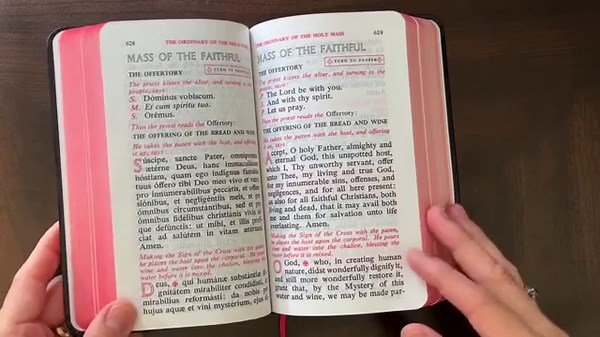 628
THE ORDINARY OF THE HOLY MASS
MASS OF THE FAITHFUL
TURN TO PROPER
THE OFFERTORY
The priest kisses the altar, and turning to the
people, says:
S. Dóminus vobíscum.
M. Et cum spíritu tuo.
S. Orémus.
Then the priest reads the Offertory:
THE OFFERING OF THE BREAD AND WINE
He takes the paten with the host, and offering
it up, says:
Súscipe, sancte Pater, omnípotens
ætérne Deus, hanc immaculátam
hóstiam, quam ego indígnus fámulus
tuus óffero tibi Deo meo vivo et vero
pro innumerabílibus peccátis, et offen-
siónibus, et neglegéntiis meis, et pro
ómnibus circumstántibus, sed et pro
ómnibus fidélibus christiánis vivis at-
que defúnctis: ut mihi, et illis profí-
ciat ad salútem in vitam ætérnam.
Amen.
Making the Sign of the Cross with the paten,
he places the host upon the corporal. He pours
wine and water into the chalice, blessing the
water before it is mixed.
Deus, ✠ qui humánæ substántiæ
dignitátem mirabíliter condidísti, et
mirabílius reformásti: da nobis per
hujus aquæ et vini mystérium, ejus
THE ORDINARY OF THE HOLY MASS
629
MASS OF THE FAITHFUL
TURN TO PROPER
THE OFFERTORY
The priest kisses the altar, and turning to the
people, says:
P. The Lord be with you.
S. And with thy spirit.
P. Let us pray.
Then the priest reads the Offertory:
THE OFFERING OF THE BREAD AND WINE
He takes the paten with the host, and offering
it up, says:
Accept, O holy Father, almighty and
eternal God, this unspotted host,
which I, Thy unworthy servant, offer
unto Thee, my living and true God,
for my innumerable sins, offenses, and
negligences, and for all here present:
as also for all faithful Christians, both
living and dead, that it may avail both
me and them for salvation unto life
everlasting. Amen.
Making the Sign of the Cross with the paten,
he places the host upon the corporal. He pours
wine and water into the chalice, blessing the
water before it is mixed.
O God, ✠ who, in creating human
nature, didst wonderfully dignify it,
and still more wonderfully restore it,
grant that, by the Mystery of this
water and wine, we may be made par-